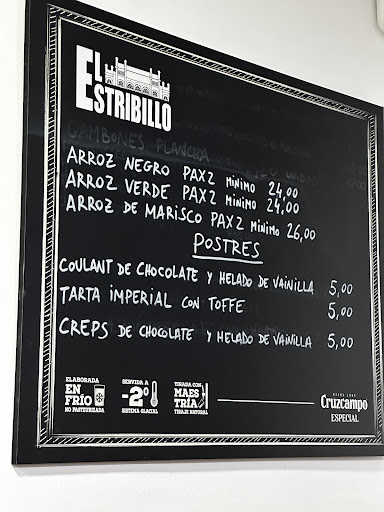 EL
ESTRIBILLO
GAMBONES PLANCHA
ARROZ NEGRO PAX2 MINIMO 24,00
ARROZ VERDE PAX2 MINIMO 24,00
ARROZ DE MARISCO PAX2 MINIMO 26,00
POSTRES
COULANT DE CHOCOLATE Y HELADO DE VAINILLA 5,00
TARTA IMPERIAL CON TOFFE 5,00
CREPS DE CHOCOLATE Y HELADO DE VAINILLA 5,00
ELABORADA
EN
FRÍO
NO PASTEURIZADA
SERVIDA A
-2º
SISTEMA GLACIAL
TIRADA CON
MAES
TRÍA
TIRAJE NATURAL
DESDE 1904
Cruzcampo
ESPECIAL